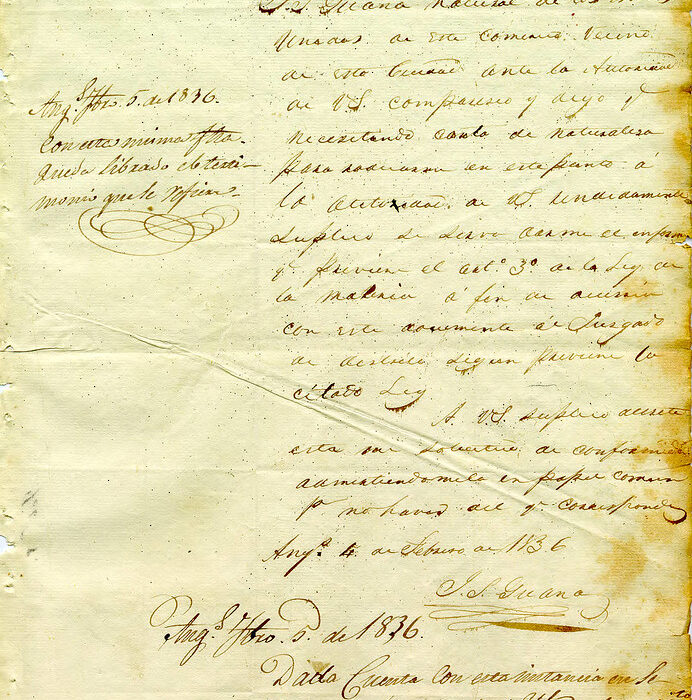 J. S. Guana natural de los
Unidos de este comercio Vecino
de esta Ciudad ante la Autoridad
de VS. comparesco y digo q^e
necesitando carta de naturaleza
para radicarme en este punto á
la Autoridad de VS. rendidamente
Suplico se sirva darme el informe
q^e previene el art.º 3º de la Ley de
la materia á fin de
con este documento al Juzgado
de distrito segun previene la
citada Ley
A VS. suplico decrete
esta mi solicitud de conformidad
admitiendomela en papel comun
p^r no haver del q^e corresponde
Ang.^s 4 de Febrero de 1836
J. S. Guana
Ang.^s Fbro. 5. de 1836.
Con esta misma fha.
queda librado el testi-
monio que se refiere.
Ang.^s Fbro. 5. de 1836.
Dada Cuenta con esta instancia en Se